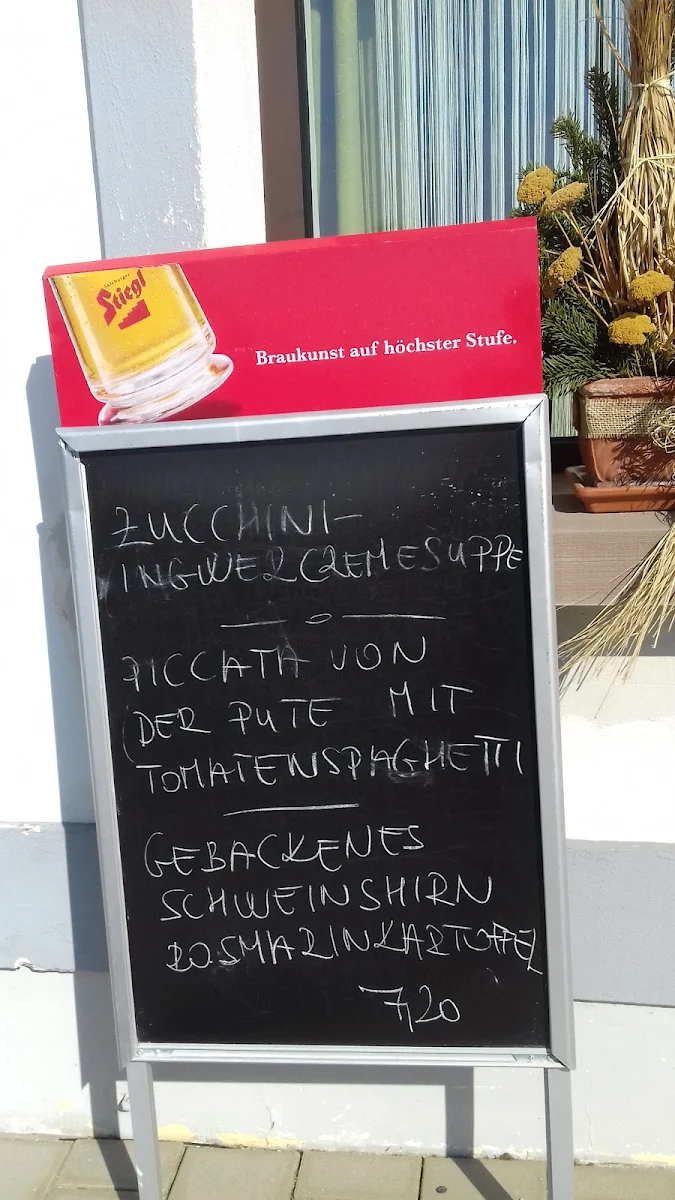 Salzburger
Stiegl
Braukunst auf höchster Stufe.
ZUCCHINI-
INGWERCREMESUPPE
PICCATA VON
DER PUTE MIT
TOMATENSPAGHETTI
GEBACKENES
SCHWEINSHIRN
ROSMARINKARTOFFEL
7,20